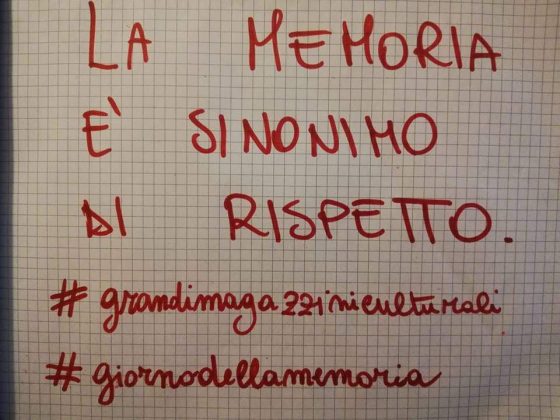 LA MEMORIA
E' SINONIMO
DI RISPETTO.
#grandimagazziniculturali
#giornodellamemoria